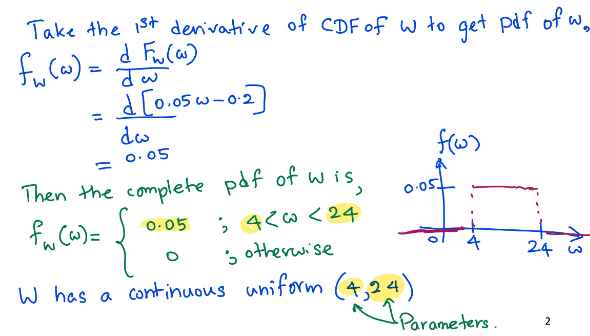 Take the 1st derivative of CDF of W to get pdf of w,
f_W(ω) = d F_W(ω) / dω
= d [0.05ω - 0.2] / dω
= 0.05
Then the complete pdf of W is,
f_W(ω) = { 0.05 ; 4 < ω < 24
0 ; otherwise
f(ω)
0.05
0 4 24 ω
W has a continuous uniform (4,24)
Parameters.
2